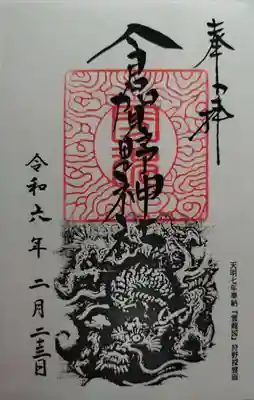 奉拝
倉賀野神社
令和六年 二月二三日
天明七年奉納『雲龍図』狩野探雲画